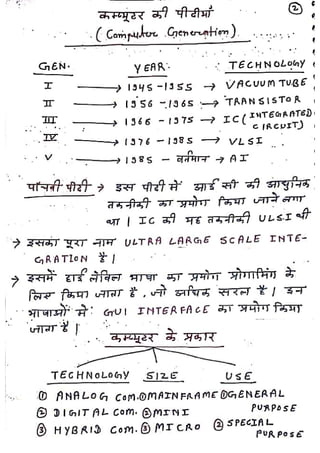 कम्प्यूटर की पीढीयाँ
②
( Computer Generation )
GEN. YEAR TECHNOLOGY
I → 1945-1955 → VACUUM TUBE
II → 1956-1965 → TRANSISTOR
III → 1966-1975 → IC (INTEGRATED CIRCUIT)
IV → 1976-1985 → VLSI
V → 1985 - वर्तमान → AI
पाँचवी पीढी → इस पीढी में आई सी की आधुनिक
तकनीकी का प्रयोग किया जाने लगा
था। IC की यह तकनीकी ULSI थी
→ इसका पूरा नाम ULTRA LARGE SCALE INTE-
GRATION है।
→ इसमें हाई लेविल भाषा का प्रयोग प्रोग्रामिंग के
लिए किया जाता है, जो अधिक सरल है। इन
भाषाओं में GUI INTERFACE का प्रयोग किया
जाता है।
कम्प्यूटर के प्रकार
TECHNOLOGY SIZE USE
① ANALOG COM. ① MAINFRAME ① GENERAL PURPOSE
② DIGITAL COM. ② MINI
③ HYBRID COM. ③ MICRO ② SPECIAL PURPOSE